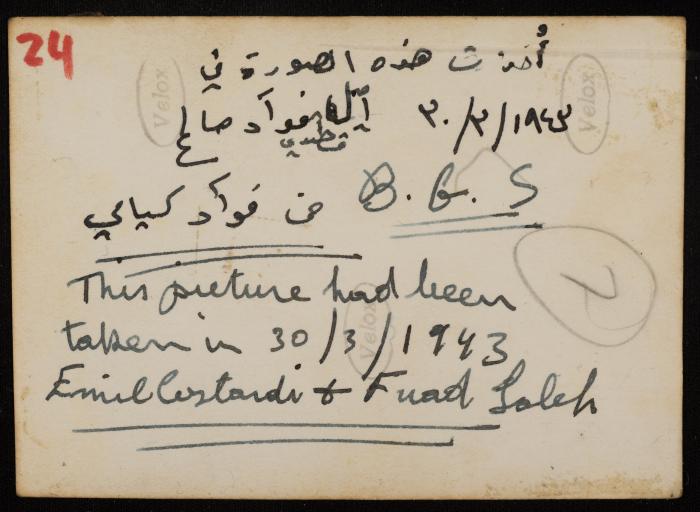 24
أُخذت هذه الصورة في
٣٠/٣/١٩٤٣ فؤاد صالح
B. G. S
من فؤاد
This picture had been
taken in 30/3/1943
Emil Costandi + Fuad Saleh
Velox
Velox
Velox